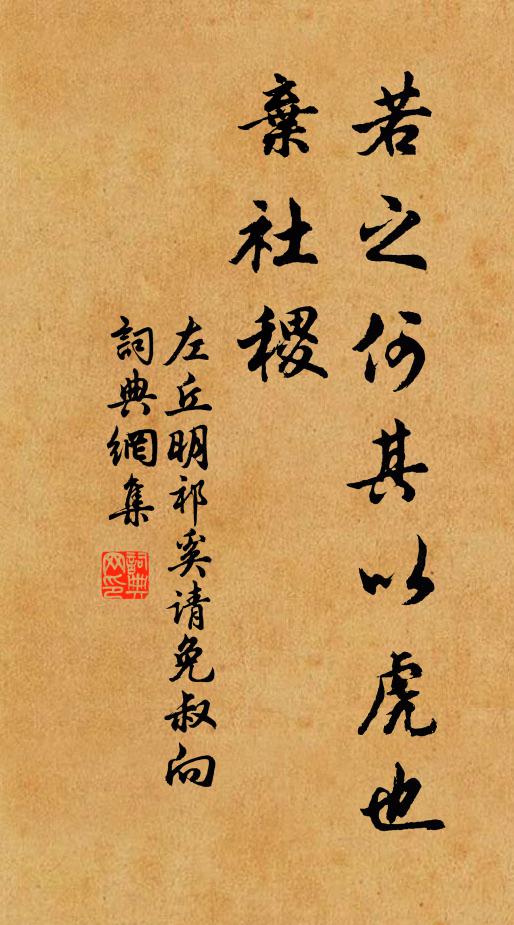 若之何其以虎也
棄社稷
左丘明祁奚請免叔向
詞典網集
詞典
网印